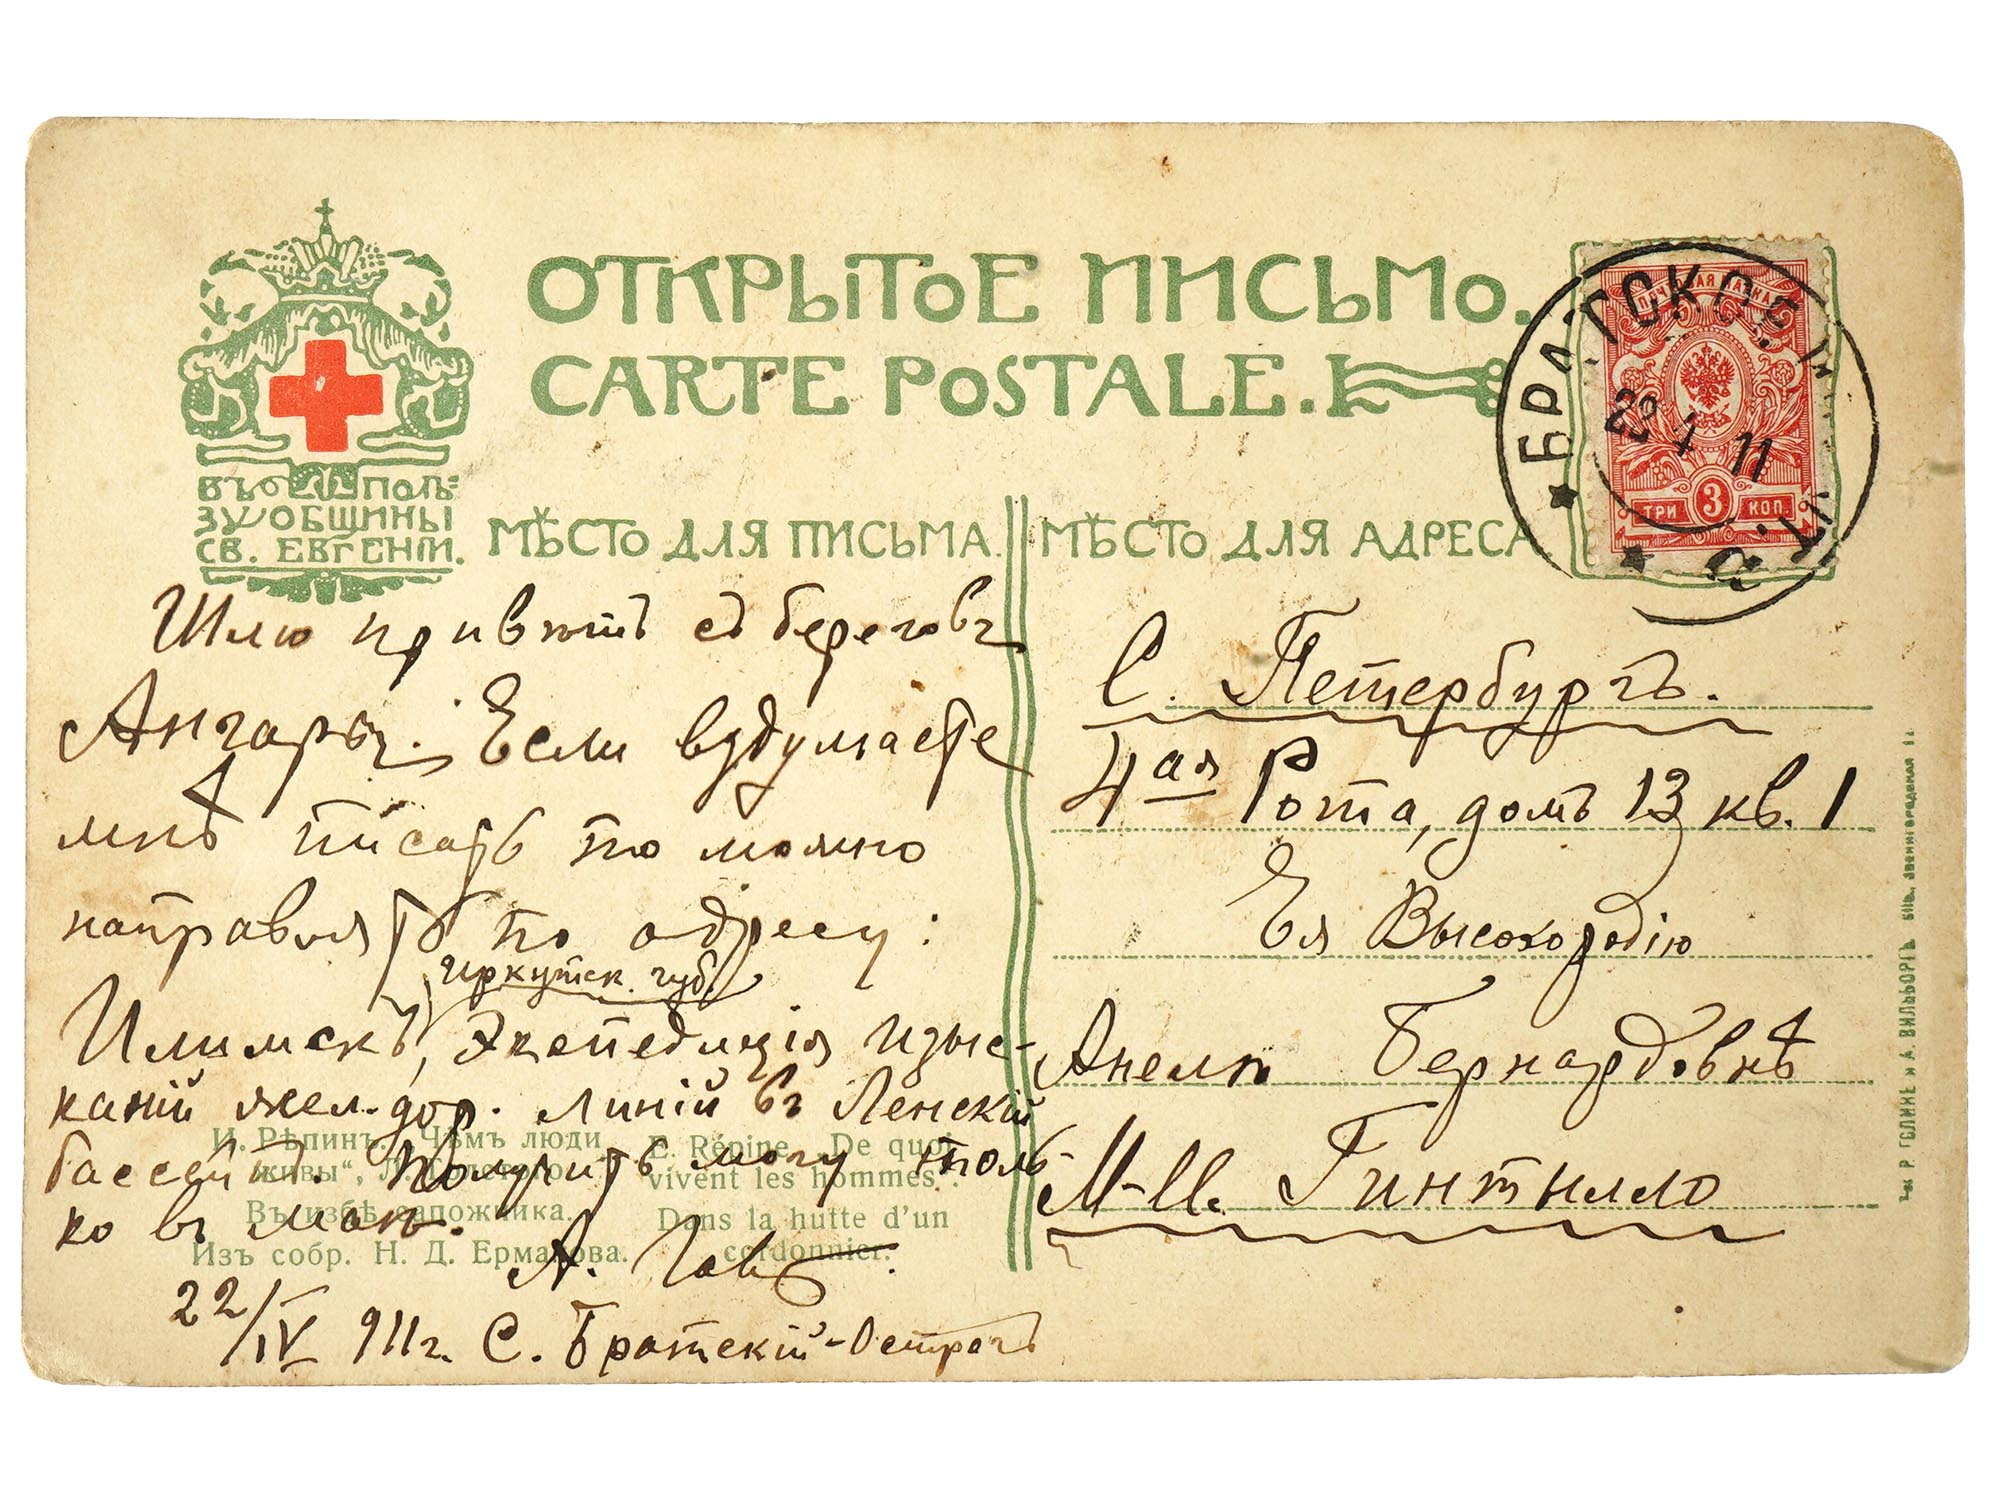 ОТКРЫТОЕ ПИСЬМО.
CARTE POSTALE.
ВЪ ПОЛЬ=
ЗУ ОБЩИНЫ
СВ. ЕВГЕНІИ.
МѢСТО ДЛЯ ПИСЬМА.
МѢСТО ДЛЯ АДРЕСА
ПОЧТОВАЯ МАРКА
3
ТРИ КОП.
БРАТСКОЕ
4 11
Шлю привѣтъ съ береговъ
Ангары. Если вздумаете
мнѣ писать то можно
направлять по адресу:
Иркутск. губ.
Илимскъ, Экспедиція изыс-
каній жел. дор. линій въ Ленскій
бассейнъ. Получить могу толь-
ко въ маѣ.
А.
22/IV 911 г. С. Братскій-Острогъ
И. Рѣпинъ. „Чѣмъ люди
живы“, Л. Толстого.
Въ избѣ сапожника.
Изъ собр. Н. Д. Ермакова.
E. Répine. „De quoi
vivent les hommes“.
Dans la hutte d'un
cordonnier.
С. Петербургъ.
4ая Рота, домъ 13 кв. 1
Ея Высокородію
Анелѣ Бернардовнѣ
М-ме. Гинтылло
Т-во Р. ГОЛИКЕ и А. ВИЛЬБОРГЪ. СПБ., Звенигородская 11.